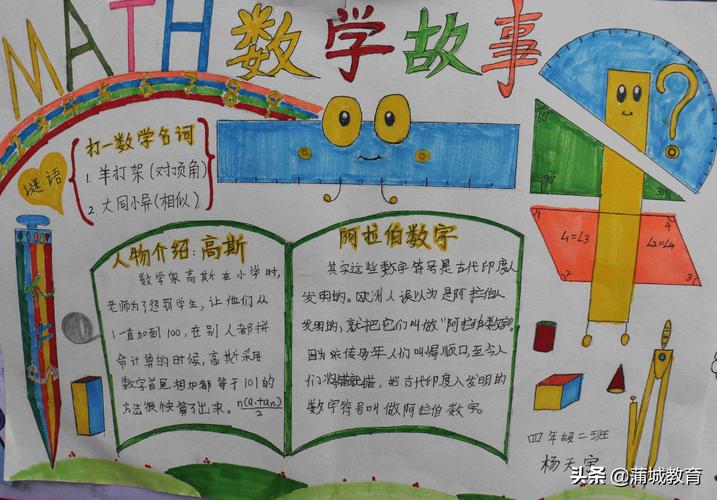 MATH 数学故事
1 2 3 4 5 6 7 8 9
谜语
打一数学名词
1. 羊打架(对顶角)
2. 大同小异(相似)
人物介绍:高斯
数学家高斯在小学时,
老师为了惩罚学生,让他们从
1一直加到100,在别人都拼
命计算的时候,高斯采用
数字首尾相加都等于101的
方法很快算了出来。n(a₁+aₙ)/2
阿拉伯数字
其实这些数字符号是古代印度人
发明的。欧洲人误以为是阿拉伯人
发明的,就把它们叫做“阿拉伯数字”。
因为流传多年人们叫得顺口,至今人
们将错就错,把古代印度人发明的
数字符号叫做阿拉伯数字。
?
60°
90°
30°
1
4
∠1=∠3
∠2=∠4
2
3
四年级二班
杨天宇
头条 @蒲城教育